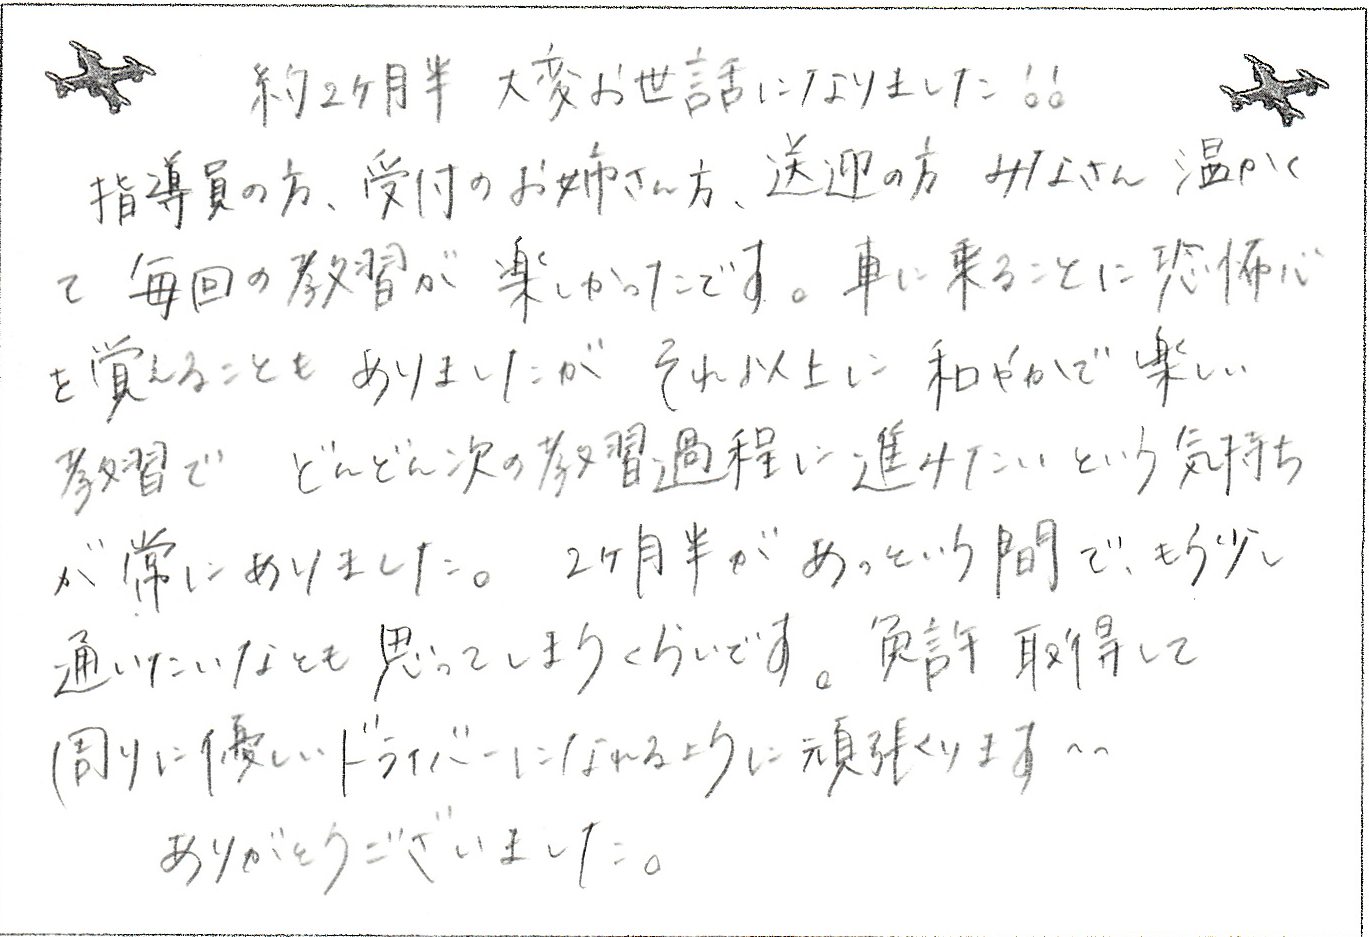 約2ケ月半 大変お世話になりました!!
指導員の方、受付のお姉さん方、送迎の方 みなさん 温かく
て 毎回の教習が 楽しかったです。車に乗ることに恐怖心
を覚えることも ありましたが それ以上に 和やかで 楽しい
教習で どんどん次の教習過程に進みたいという気持ち
が常にありました。 2ケ月半が あっという間で、もう少し
通いたいなとも 思ってしまうくらいです。免許 取得して
周りに優しいドライバーになれるように頑張ります〜
ありがとうございました。